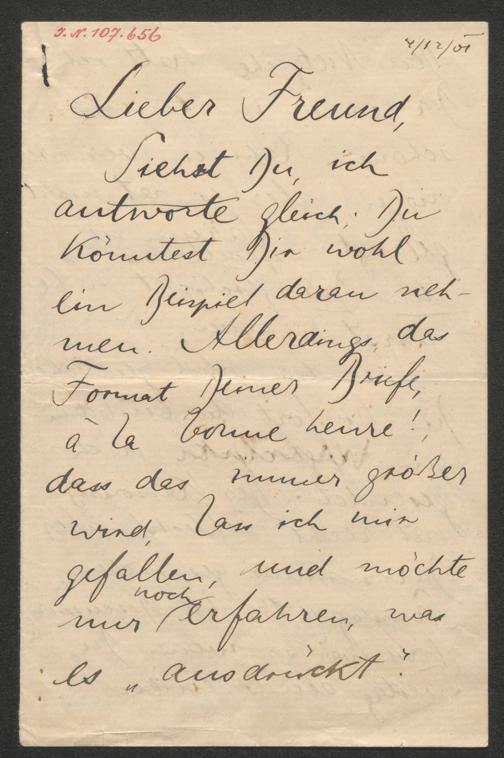 I. N. 107.656
4/12/01
Lieber Freund,
Siehst Du, ich
antworte gleich; Du
könntest Dir wohl
ein Beispiel daran neh-
men. Allerdings, das
Format Deiner Briefe,
à la bonne heure!,
dass das immer größer
wird, lass ich mir
gefallen, und möchte
nur noch erfahren, was
es „ausdrückt".